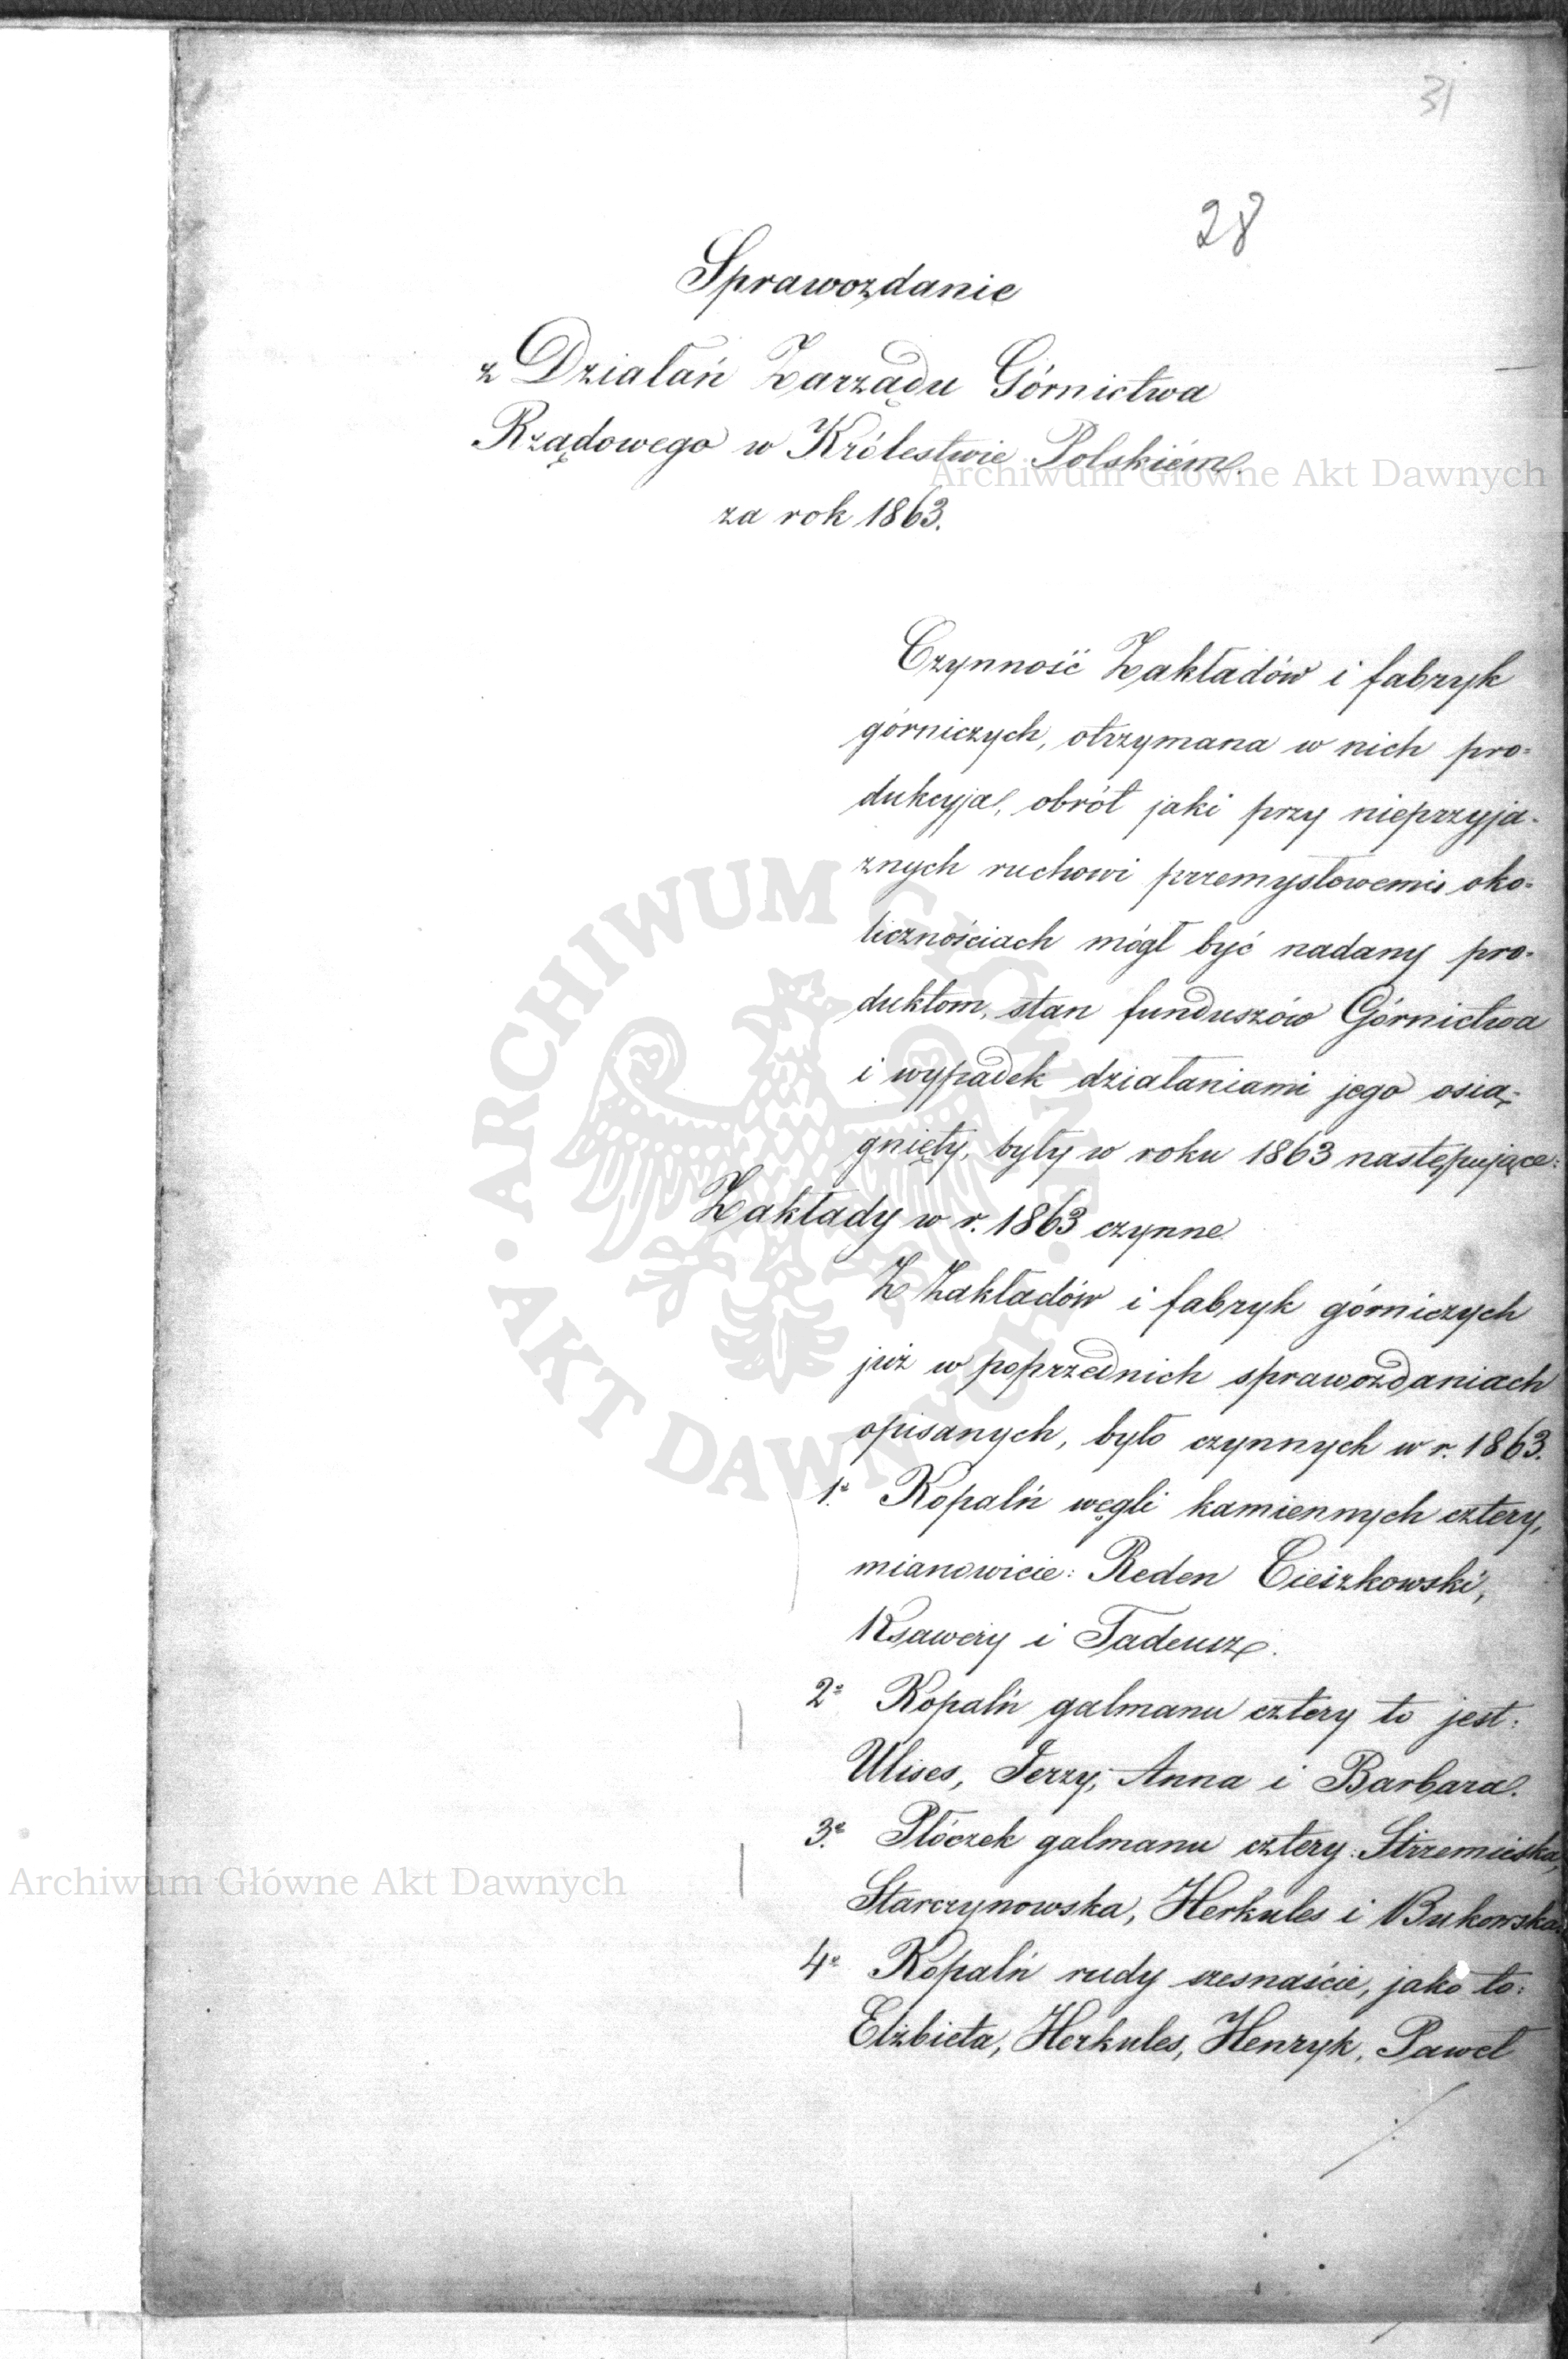 31
28
Sprawozdanie
z Działań Zarządu Górnictwa
Rządowego w Królestwie Polskiém
za rok 1863.
Czynność Zakładów i fabryk
górniczych, otrzymana w nich pro=
dukcyja, obrót jaki przy nieprzyja-
znych ruchowi przemysłowemu oko-
licznościach mógł być nadany pro-
duktom, stan funduszów Górnictwa
i wypadek działaniami jego osią-
gnięty, były w roku 1863 następujące:
Zakłady w r. 1863 czynne
Z Zakładów i fabryk górniczych
już w poprzednich sprawozdaniach
opisanych, było czynnych w r. 1863.
1e Kopalń węgli kamiennych cztery,
mianowicie: Reden Cieszkowski,
Ksawery i Tadeusz.
2e Kopalń galmanu cztery to jest:
Ulises, Jerzy, Anna i Barbara.
3e Płóczek galmanu cztery: Strzemieska,
Starczynowska, Herkules i Bukowska.
4e Kopalń rudy szesnaście, jako to:
Elżbieta, Herkules, Henryk, Paweł
Archiwum Główne Akt Dawnych
Archiwum Główne Akt Dawnych
ARCHIWUM GŁÓWNE · AKT DAWNYCH ·